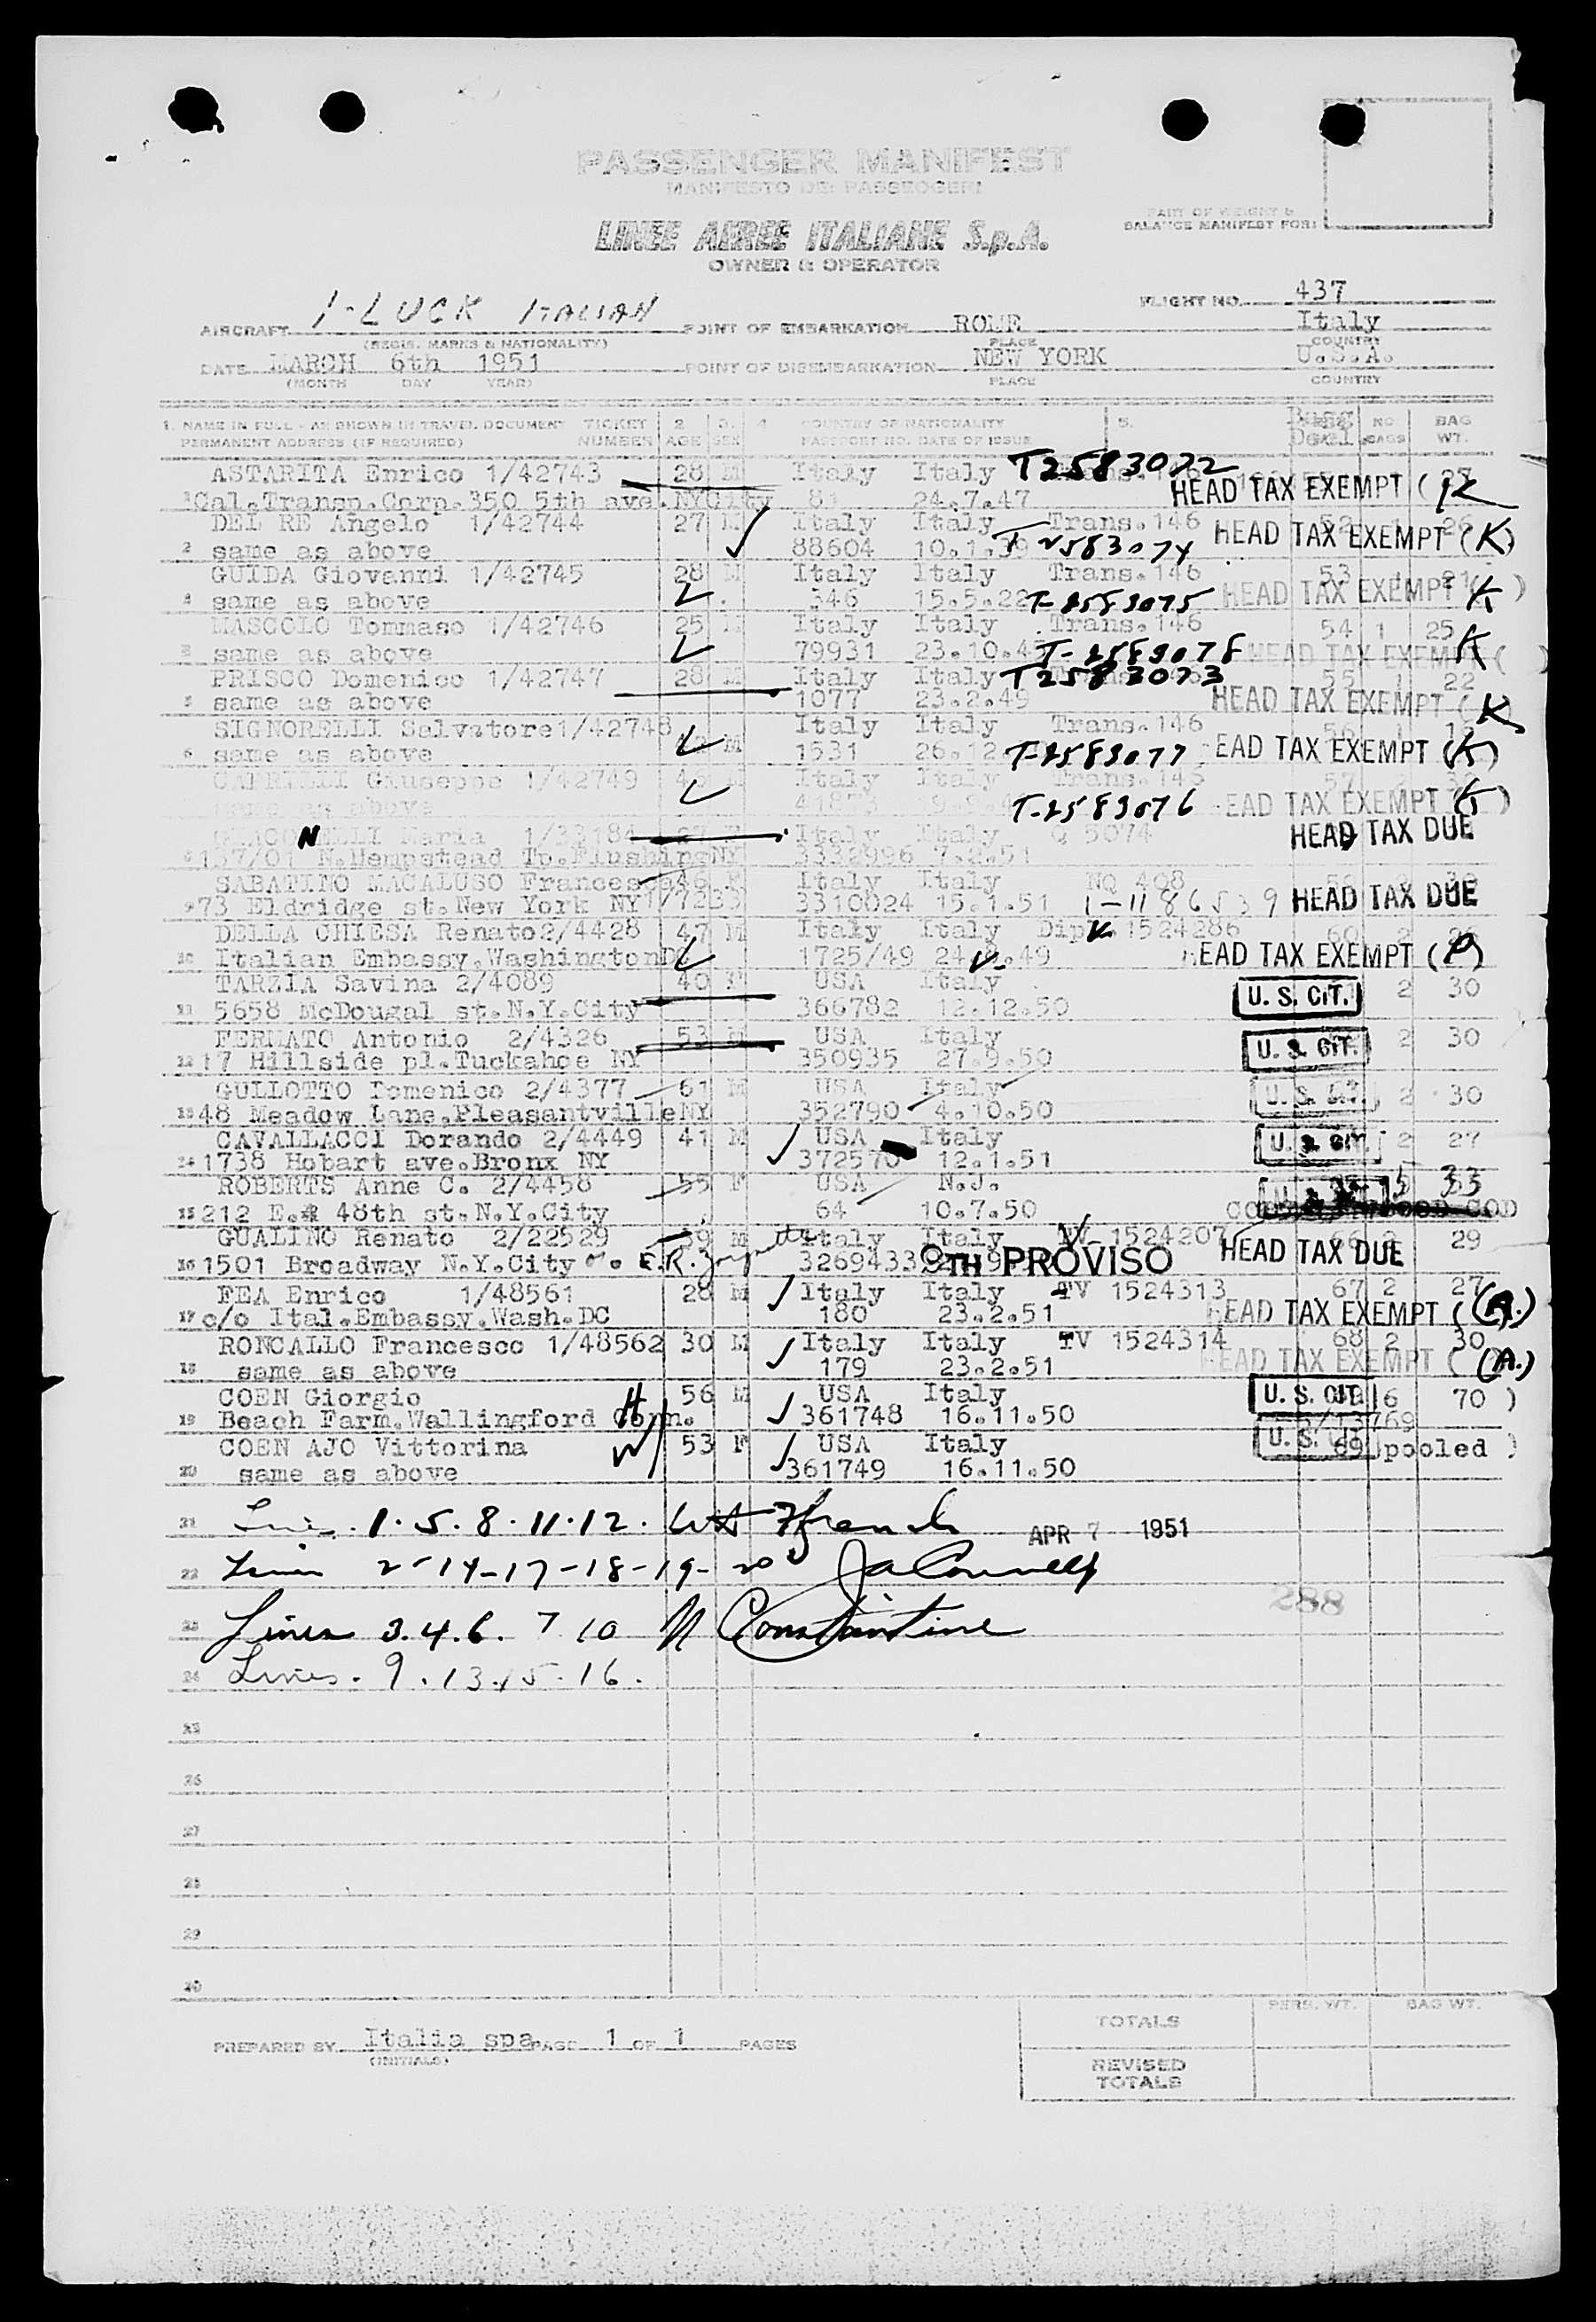 PASSENGER MANIFEST
MANIFESTO DEI PASSEGGERI
LINEE AEREE ITALIANE S.p.A.
OWNER & OPERATOR
PART OF WEIGHT &
BALANCE MANIFEST FOR:
FLIGHT NO. 437
AIRCRAFT I-LUCK ITALIAN POINT OF EMBARKATION ROME Italy
(REGIS. MARKS & NATIONALITY) PLACE COUNTRY
DATE MARCH 6th 1951 POINT OF DISEMBARKATION NEW YORK U.S.A.
(MONTH DAY YEAR) PLACE COUNTRY
1. NAME IN FULL - AS SHOWN IN TRAVEL DOCUMENT TICKET 2 3. 4 COUNTRY OF NATIONALITY 5. Bagg NO. BAG
PERMANENT ADDRESS (IF REQUIRED) NUMBER AGE SEX PASSPORT NO. DATE OF ISSUE Decl. BAGS WT.
ASTARITA Enrico 1/42743 28 M Italy Italy T2583072 27
1 Cal.Transp.Corp.350 5th ave.NYCity 81 24.7.47 HEAD TAX EXEMPT (K
DEL RE Angelo 1/42744 27 M Italy Italy Trans.146 52 26
2 same as above 88604 10.1.39 T-2583074 HEAD TAX EXEMPT (K)
GUIDA Giovanni 1/42745 28 M Italy Italy Trans.146 53 1 21
same as above 346 15.5.22 T-2583075 HEAD TAX EXEMPT (K)
MASCOLO Tommaso 1/42746 25 M Italy Italy Trans.146 54 1 25
same as above 79931 23.10.4 T-2583078 HEAD TAX EXEMPT (K)
PRISCO Domenico 1/42747 28 M Italy Italy T2583073 55 22
5 same as above 1077 23.2.49 HEAD TAX EXEMPT (K)
SIGNORELLI Salvatore1/42748 M Italy Italy Trans.146 56 1
6 same as above 1531 26.12 T-2583077 EAD TAX EXEMPT (K)
Giuseppe 1/42749 Italy Italy Trans.146 57
same as above 41873 T-2583076 EAD TAX EXEMPT (K)
N ELLI Maria 1/33184 27 F Italy Italy Q 5074 HEAD TAX DUE
N.Hempstead Tp.Flushing NY 3332996 7.2.51
SABATINO MACALUSO Francesca 46 F Italy Italy NQ 408
9 73 Eldridge st.New York NY 1/7233 3310024 15.1.51 1-1186539 HEAD TAX DUE
DELLA CHIESA Renato2/4428 47 M Italy Italy Dip. V 1524286 60 2
10 Italian Embassy.WashingtonDC 1725/49 24.8.49 EAD TAX EXEMPT (P)
TARZIA Savina 2/4089 40 F USA Italy U. S. CIT. 2 30
11 5658 McDougal st.N.Y.City 366782 12.12.50
FERMATO Antonio 2/4326 53 M USA Italy U. S. CIT. 2 30
12 17 Hillside pl.Tuckahoe NY 350935 27.9.50
GULLOTTO Domenico 2/4377 61 M USA Italy U. S. CIT. 2 30
13 48 Meadow Lane.Pleasantville NY 352790 4.10.50
CAVALLACCI Dorando 2/4449 41 M USA Italy U. S. CIT. 2 27
14 1738 Hobart ave.Bronx NY 372570 12.1.51
ROBERTS Anne C. 2/4458 55 F USA N.J. 33
15 212 E. 48th st.N.Y.City 64 10.7.50
GUALINO Renato 2/22529 39 M Italy Italy TV 1524207 66 2 29
16 1501 Broadway N.Y.City 3269433 9TH PROVISO HEAD TAX DUE
FEA Enrico 1/48561 28 M Italy Italy TV 1524313 67 2 27
17 c/o Ital.Embassy.Wash.DC 180 23.2.51 HEAD TAX EXEMPT (A.)
RONCALLO Francesco 1/48562 30 M Italy Italy TV 1524314 68 2 30
18 same as above 179 23.2.51 HEAD TAX EXEMPT (A.)
COEN Giorgio H 56 M USA Italy U. S. CIT. 6 70 )
19 Beach Farm.Wallingford Conn. 361748 16.11.50 13769
COEN AJO Vittorina W 53 F USA Italy U. S. CIT. 69 pooled )
20 same as above 361749 16.11.50
21 Lines. 1. 5. 8. 11. 12. APR 7 1951
22 Lines 2-14-17-18-19-20
288
23 Lines 3.4.6. 7 10 N Constantine
24 Lines. 9. 13. 15. 16.
25
26
27
28
29
30
PREPARED BY Italia spa PAGE 1 OF 1 PAGES
(INITIALS)
PERS. WT. BAG WT.
TOTALS
REVISED
TOTALS